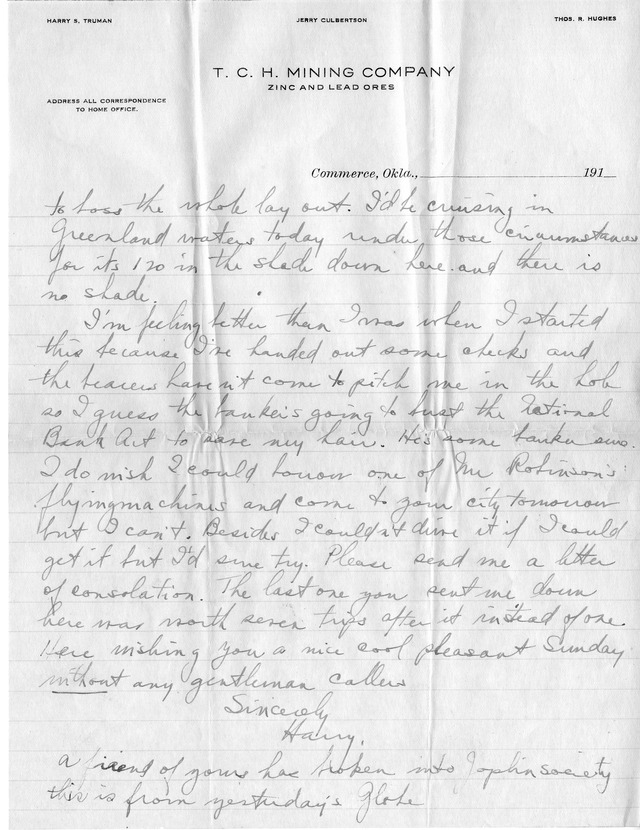 HARRY S. TRUMAN JERRY CULBERTSON THOS. R. HUGHES
T. C. H. MINING COMPANY
ZINC AND LEAD ORES
ADDRESS ALL CORRESPONDENCE
TO HOME OFFICE.
Commerce, Okla., 191
to boss the whole lay out. I'd be cruising in
Greenland waters today under those circumstances
for its 120 in the shade down here and there is
no shade.
I'm feeling better than I was when I started
this because I've handed out some checks and
the bearers haven't come to pitch me in the hole
so I guess the banker's going to bust the National
Bank Act to save my hair. He's some banker sure.
I do wish I could borrow one of Mr Robinson's
flyingmachines and come to your city tomorrow
but I can't. Besides I couldn't drive it if I could
get it but I'd sure try. Please send me a letter
of consolation. The last one you sent me down
here was worth seven trips after it instead of one.
Here wishing you a nice cool pleasant Sunday
without any gentleman callers
Sincerely
Harry.
a friend of yours has broken into Joplin society
this is from yesterday's Globe